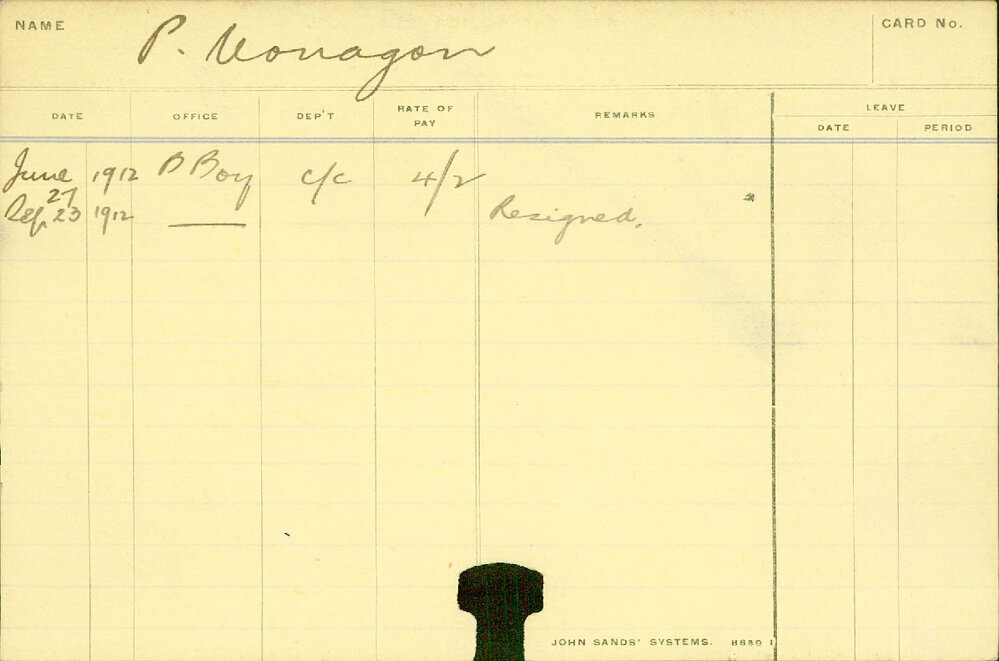 NAME P. Vonagon CARD No.
DATE OFFICE DEP'T RATE OF PAY REMARKS LEAVE
DATE PERIOD
June 27 1912 B Boy c/c 4/2
Sep. 23 1912 —— Resigned.
JOHN SANDS' SYSTEMS. H689 1